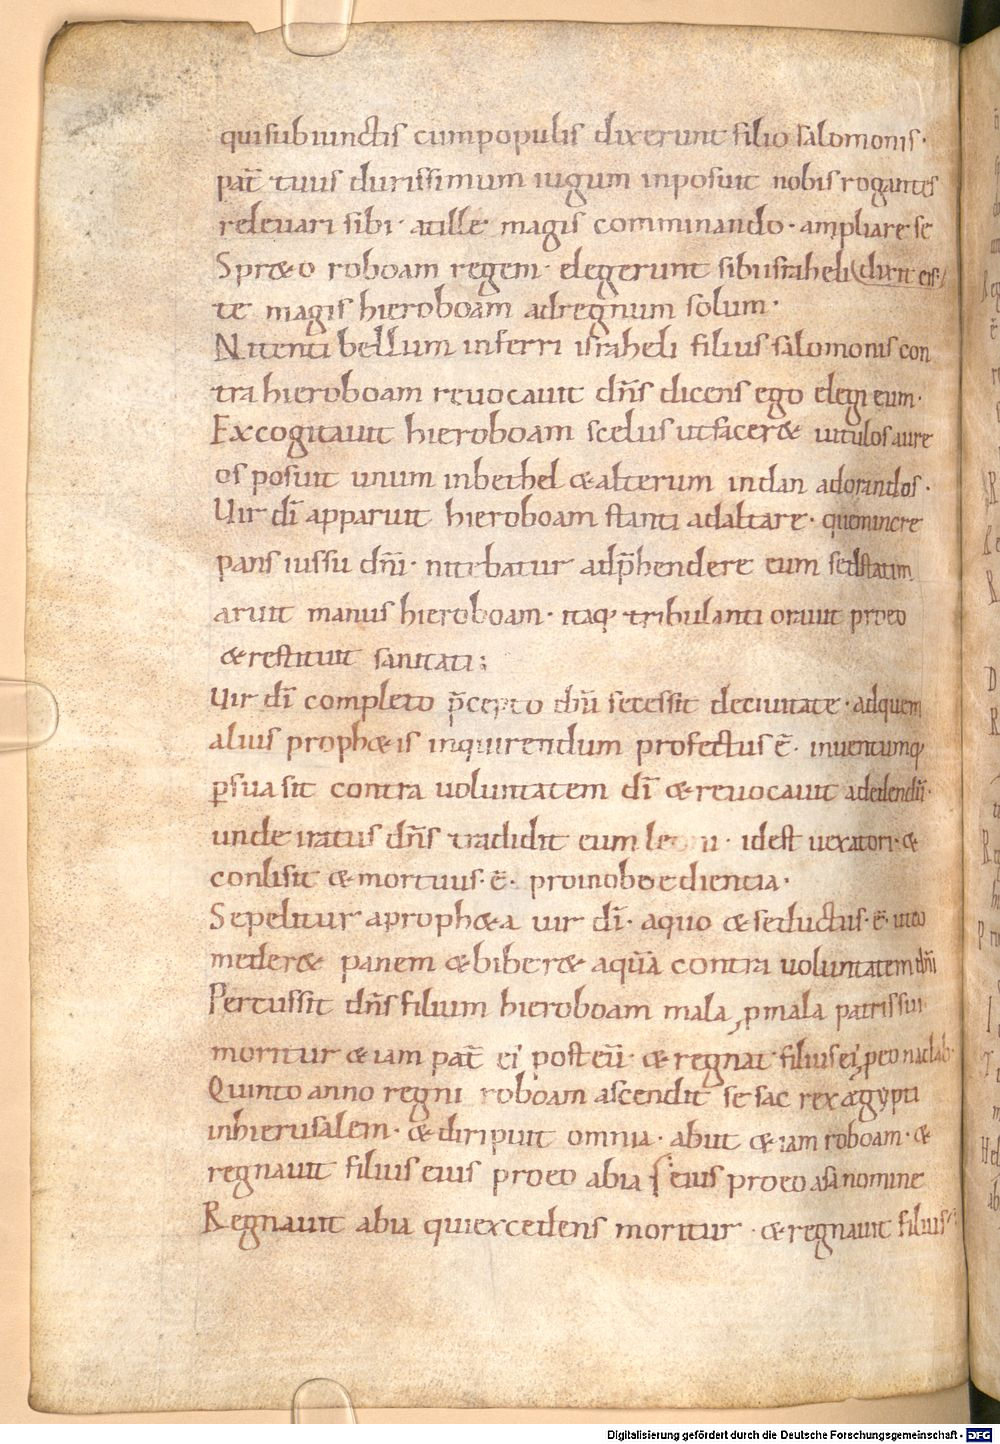 qui subiunctis cum populis dixerunt filio salomonis·
pat̄ tuus durissimum iugum inposuit nobis rogantes
releuari sibi· at ille magis comminando· ampliare se
Spr&o roboam regem· elegerunt sibi israheli dixit eis
te magis hieroboam ad regnum solum·
Nitenti bellum inferri israheli filius salomonis con
tra hieroboam reuocauit dn̄s dicens ego elegi eum·
Excogitauit hieroboam scelus ut facer& uitulos aure
os posuit unum in bethel & alterum in dan adorandos·
Uir dī apparuit hieroboam stanti ad altare· quem incre
pans iussu dn̄i· nitebatur ad p̄hendere eum sed statim
aruit manus hieroboam· itaq· tribulanti orauit pro eo
& restituit sanitati;
Uir dī completo p̄cepto dn̄i secessit de ciuitate· ad quem
alius proph&is inquirendum profectus ē· inuentumq·
p̱suasit contra uoluntatem dī & reuocauit ad edendū·
unde iratus dn̄s tradidit eum le ni· id est uexatori· &
conlisit & mortuus· ē· pro inoboedientia·
Sepelitur a proph&a uir dī· a quo & seductus· ē·
meder& panem & biber& aquā contra uoluntatem dn̄i
Percussit dn̄s filium hieroboam mala, p̱ mala patris sui
moritur & iam pat̄ ei' post eū· & regnat· filius ei' p̱ eo
Quinto anno regni roboam ascendit sesac rex ægypti
in hierusalem· & diripuit omnia· abiit & iam roboam· &
regnauit filius eius pro eo abia eius pro eo asa nomine
Regnauit abia qui excedens moritur· & regnauit filius
Digitalisierung gefördert durch die Deutsche Forschungsgemeinschaft - DFG